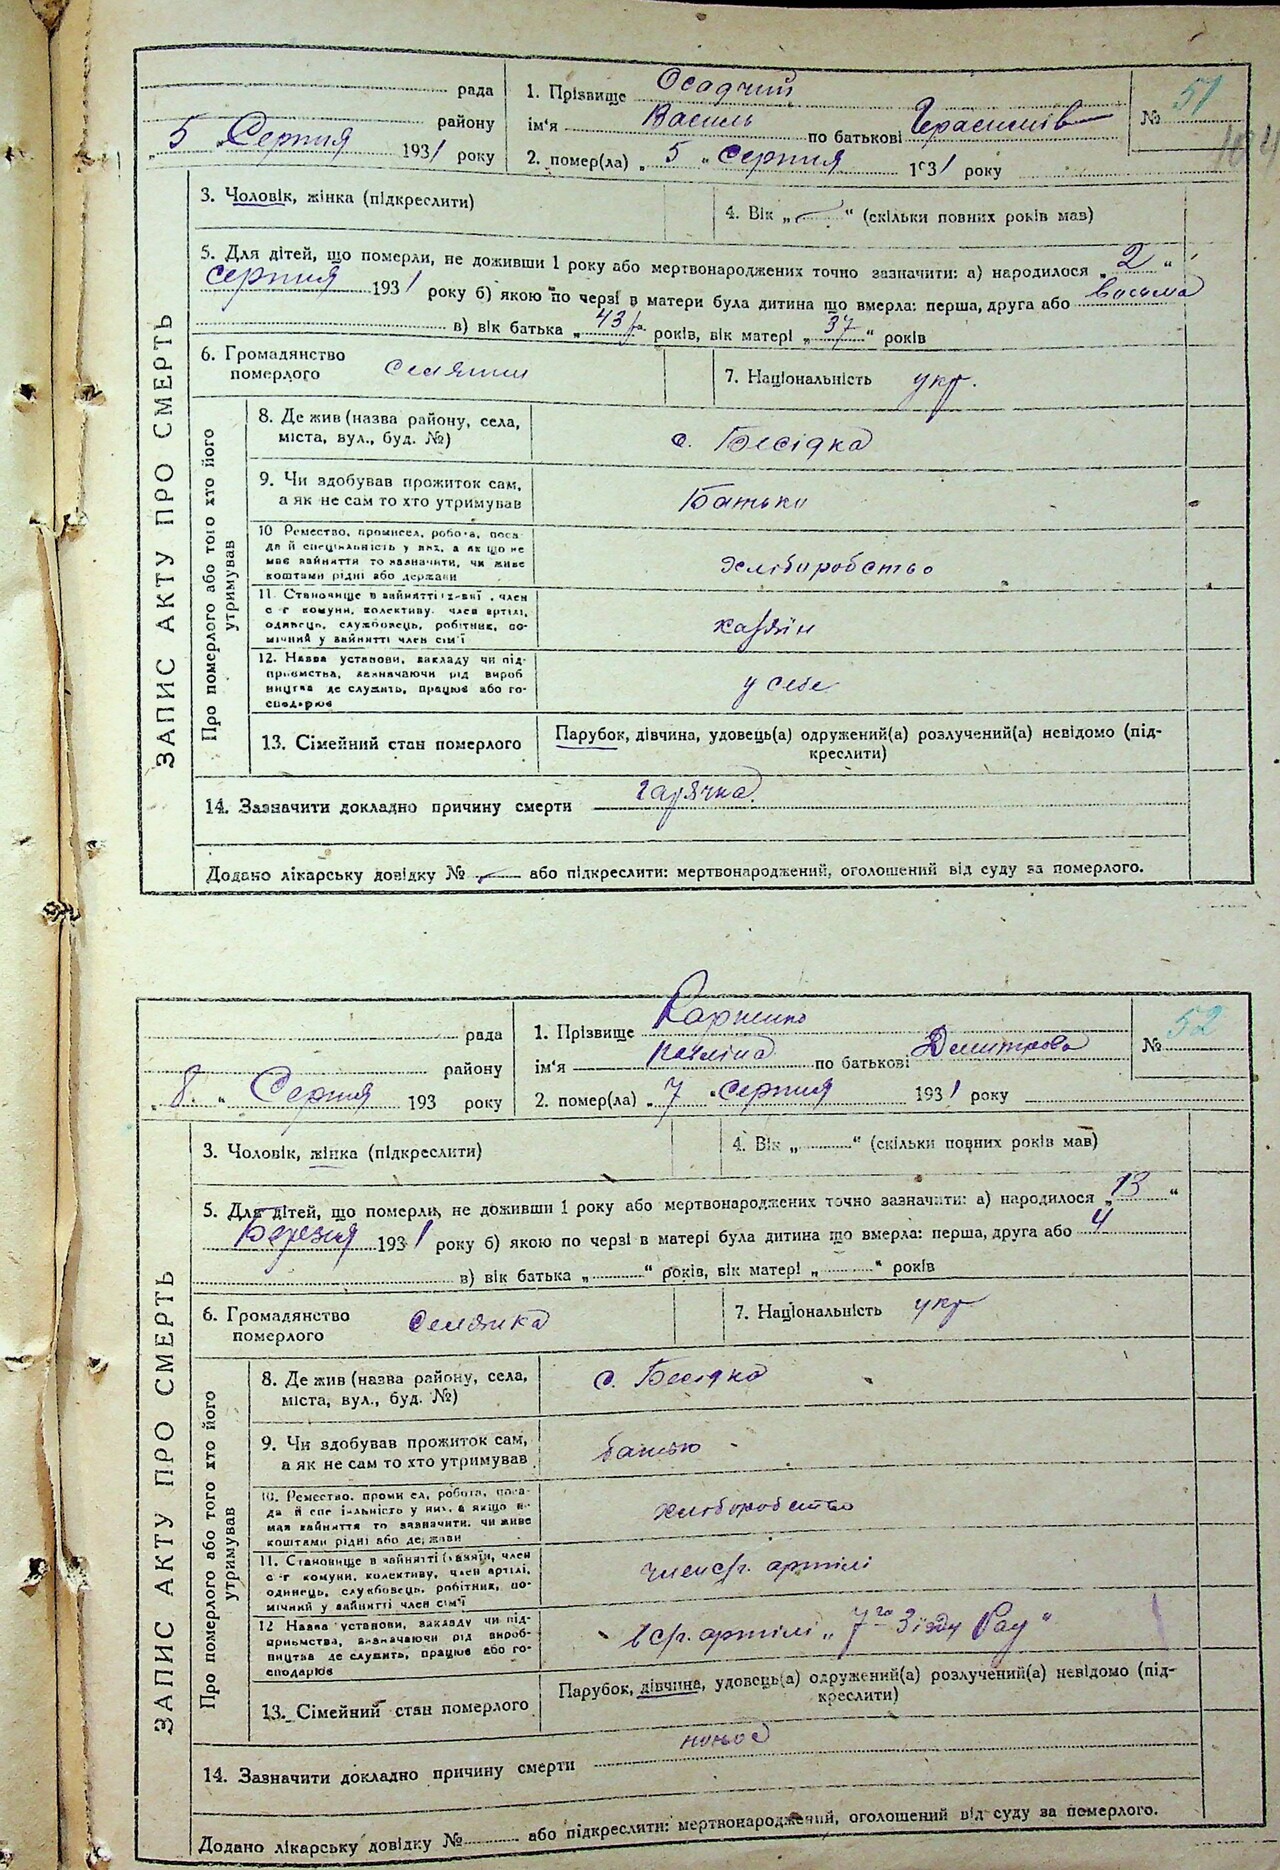 рада
району
„ 5 „ Серпня 1931 року
1. Прізвище Осадчий
ім'я Василь по батькові Герасимів
2. помер(ла) „ 5 „ серпня 1931 року
№ 51
104
ЗАПИС АКТУ ПРО СМЕРТЬ
3. Чоловік, жінка (підкреслити)
4. Вік „ — “ (скільки повних років мав)
5. Для дітей, що померли, не доживши 1 року або мертвонароджених точно зазначити: а) народилося „ 2 “
серпня 1931 року б) якою по черзі в матери була дитина що вмерла: перша, друга або восьма
в) вік батька „ 43 “ років, вік матері „ 37 “ років
6. Громадянство
померлого селянин
7. Національність укр.
Про померлого або того хто його
утримував
8. Де жив (назва району, села,
міста, вул., буд. №)
с. Бесідка
9. Чи здобував прожиток сам,
а як не сам то хто утримував
Батько
10 Ремество, промисел, робота, поса-
да й спеціяльність у них, а якщо не
має зайняття то зазначити, чи живе
коштами рідні або держави
хліборобство
11. Становище в зайнятті (хазяїн, член
с-г комуни, колективу, член артілі,
одинець, службовець, робітник, по-
мічний у зайнятті член сім'ї
хазяїн
12. Назва установи, закладу чи під-
приємства, зазначаючи рід вироб
ництва де служить, працює або го-
сподарює
у себе
13. Сімейний стан померлого
Парубок, дівчина, удовець(а) одружений(а) розлучений(а) невідомо (під-
креслити)
14. Зазначити докладно причину смерти гарячка.
Додано лікарську довідку № — або підкреслити: мертвонароджений, оголошений від суду за померлого.
рада
району
„ 8. “ Серпня 193 року
1. Прізвище
ім'я по батькові Дмитрова
2. помер(ла) „ 7 “ серпня 1931 року
№ 52
ЗАПИС АКТУ ПРО СМЕРТЬ
3. Чоловік, жінка (підкреслити)
4. Вік „ “ (скільки повних років мав)
5. Для дітей, що померли, не доживши 1 року або мертвонароджених точно зазначити: а) народилося „ 13 “
Березня 1931 року б) якою по черзі в матері була дитина що вмерла: перша, друга або 4
в) вік батька „ “ років, вік матері „ “ років
6. Громадянство
померлого селянка
7. Національність укр
Про померлого або того хто його
утримував
8. Де жив (назва району, села,
міста, вул., буд. №)
с. Бесідка
9. Чи здобував прожиток сам,
а як не сам то хто утримував
батько
10. Ремество, промисел, робота, поса-
да й спеціяльність у них, а якщо не
має зайняття то зазначити, чи живе
коштами рідні або держави
хліборобство
11. Становище в зайнятті (хазяїн, член
с-г комуни, колективу, член артілі,
одинець, службовець, робітник, по-
мічний у зайнятті член сім'ї
член с/г. артілі
12 Назва установи, закладу чи під-
приємства, зазначаючи рід вироб-
ництва де служить, працює або го-
сподарює
в с/г. артілі „ 7го Зїзду Рад “
13. Сімейний стан померлого
Парубок, дівчина, удовець(а) одружений(а) розлучений(а) невідомо (під-
креслити)
14. Зазначити докладно причину смерти понос
Додано лікарську довідку № або підкреслити: мертвонароджений, оголошений від суду за померлого.